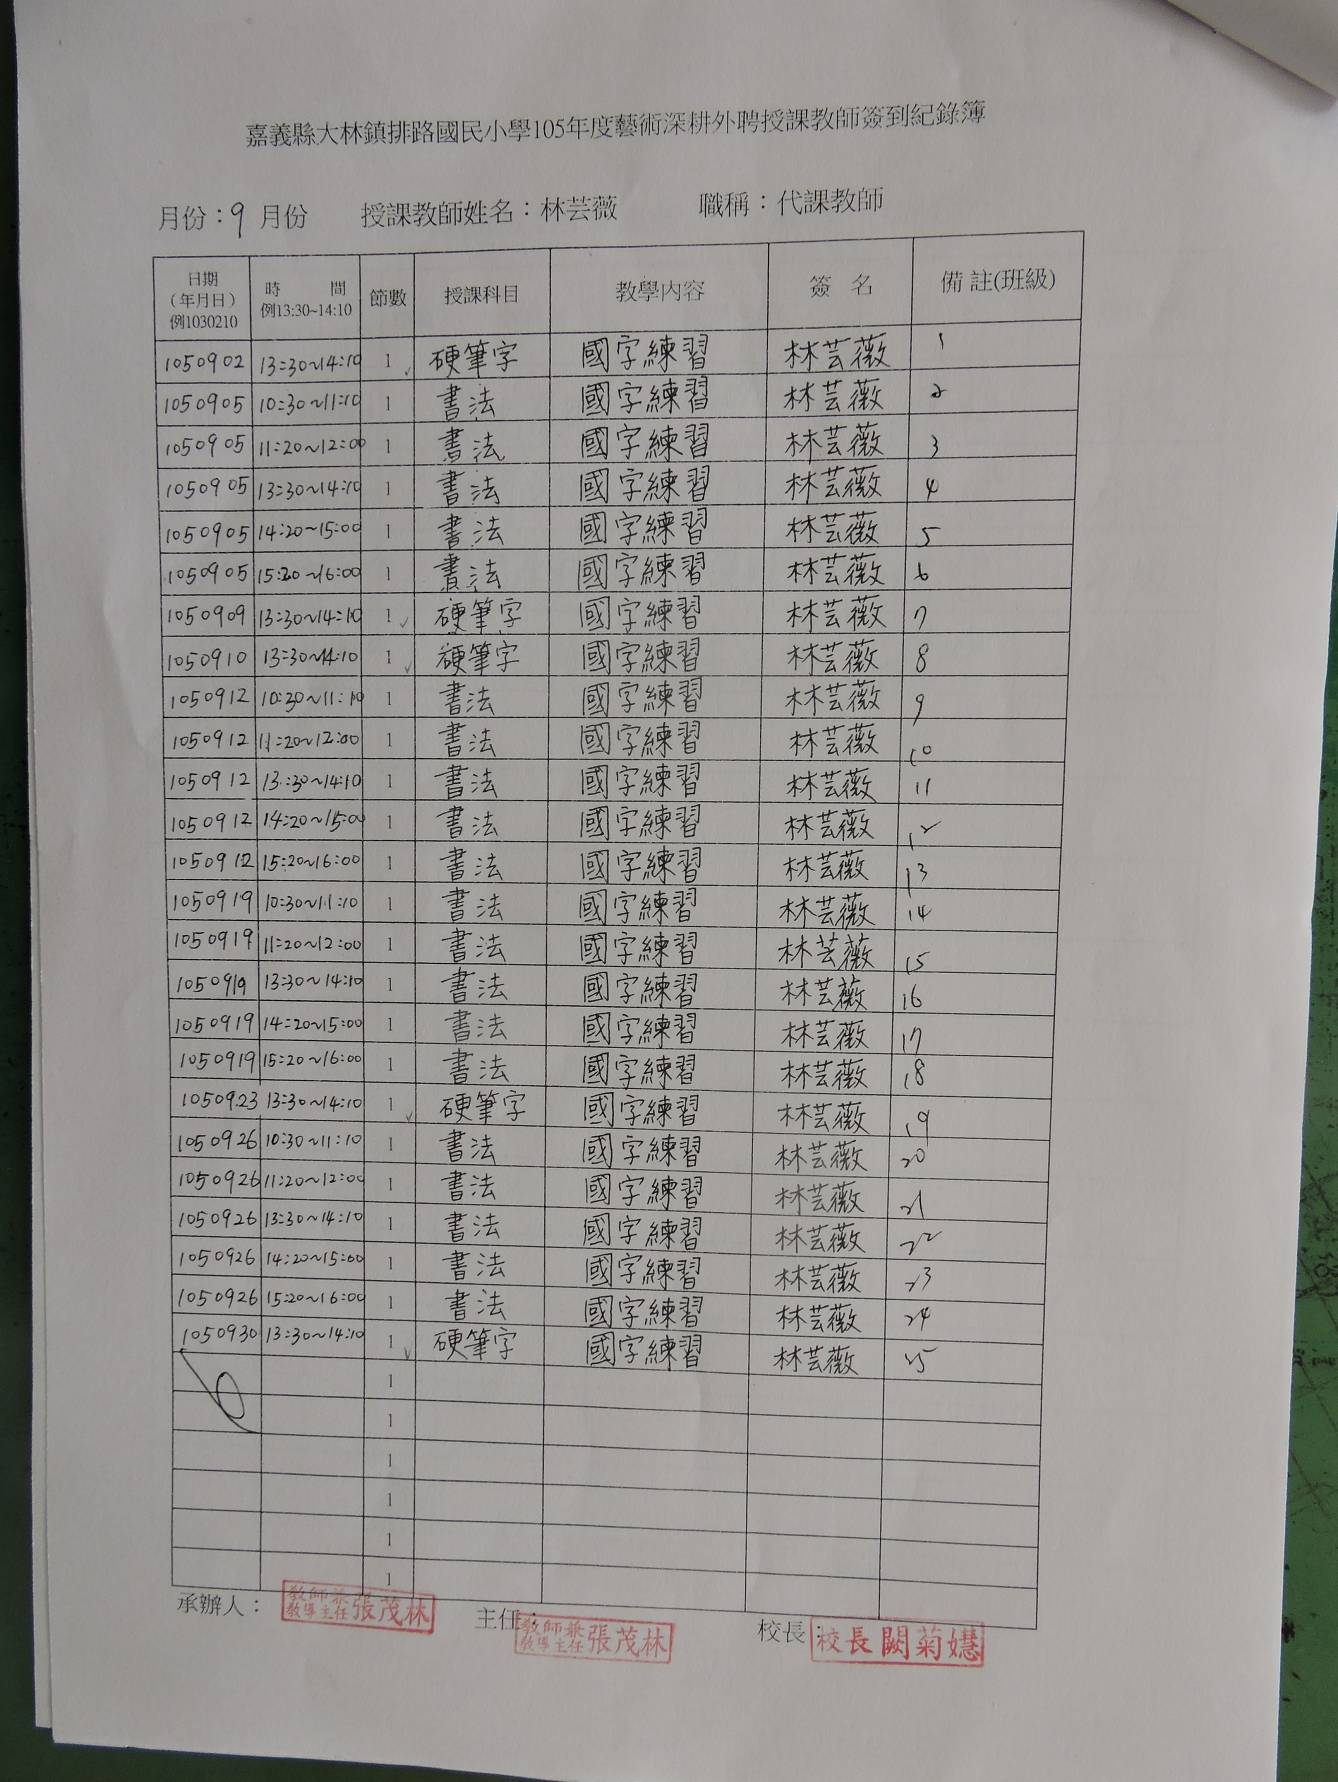 嘉義縣大林鎮排路國民小學105年度藝術深耕外聘授課教師簽到紀錄簿
月份：9 月份 授課教師姓名：林芸薇 職稱：代課教師
日期 (年月日) 例1030210 時 間 例13:30~14:10 節數 授課科目 教學內容 簽 名 備 註(班級)
1050902 13:30~14:10 1 ✓ 硬筆字 國字練習 林芸薇 1
1050905 10:30~11:10 1 書法 國字練習 林芸薇 2
1050905 11:20~12:00 1 書法 國字練習 林芸薇 3
1050905 13:30~14:10 1 書法 國字練習 林芸薇 4
1050905 14:20~15:00 1 書法 國字練習 林芸薇 5
1050905 15:20~16:00 1 書法 國字練習 林芸薇 6
1050909 13:30~14:10 1 ✓ 硬筆字 國字練習 林芸薇 7
1050910 13:30~14:10 1 ✓ 硬筆字 國字練習 林芸薇 8
1050912 10:30~11:10 1 書法 國字練習 林芸薇 9
1050912 11:20~12:00 1 書法 國字練習 林芸薇 10
1050912 13:30~14:10 1 書法 國字練習 林芸薇 11
1050912 14:20~15:00 1 書法 國字練習 林芸薇 12
1050912 15:20~16:00 1 書法 國字練習 林芸薇 13
1050919 10:30~11:10 1 書法 國字練習 林芸薇 14
1050919 11:20~12:00 1 書法 國字練習 林芸薇 15
1050919 13:30~14:10 1 書法 國字練習 林芸薇 16
1050919 14:20~15:00 1 書法 國字練習 林芸薇 17
1050919 15:20~16:00 1 書法 國字練習 林芸薇 18
1050923 13:30~14:10 1 ✓ 硬筆字 國字練習 林芸薇 19
1050926 10:30~11:10 1 書法 國字練習 林芸薇 20
1050926 11:20~12:00 1 書法 國字練習 林芸薇 21
1050926 13:30~14:10 1 書法 國字練習 林芸薇 22
1050926 14:20~15:00 1 書法 國字練習 林芸薇 23
1050926 15:20~16:00 1 書法 國字練習 林芸薇 24
1050930 13:30~14:10 1 ✓ 硬筆字 國字練習 林芸薇 25
1
1
1
1
1
1
承辦人： 教師兼教導主任 張茂林 主任： 教師兼教導主任 張茂林 校長： 校長 闕菊嬨